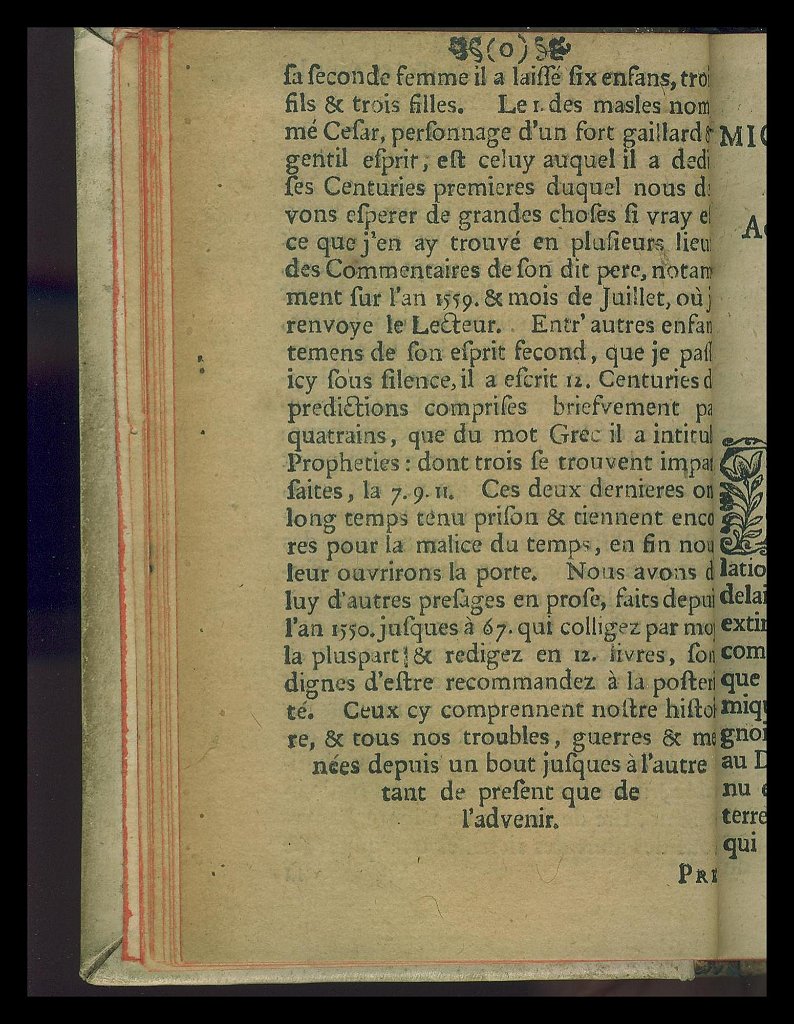 §§(0)§§
ſa ſeconde femme il a laiſſé ſix enfans, troi
fils & trois filles. Le 1. des masles nom
mé Ceſar, perſonnage d'un fort gaillard &
gentil eſprit, eſt celuy auquel il a dedi
ſes Centuries premieres duquel nous de
vons eſperer de grandes choſes ſi vray eſ
ce que j'en ay trouvé en pluſieurs lieu
des Commentaires de ſon dit pere, notam
ment ſur l'an 1559. & mois de Juillet, où j
renvoye le Lecteur. Entr' autres enfan
temens de ſon eſprit fecond, que je paſſ
icy ſous ſilence, il a eſcrit 12. Centuries d
predictions compriſes briefvement pa
quatrains, que du mot Grec il a intitul
Propheties : dont trois ſe trouvent impar
faites, la 7. 9. 11. Ces deux dernieres on
long temps tenu priſon & tiennent enco
res pour la malice du temps, en fin nou
leur ouvrirons la porte. Nous avons d
luy d'autres preſages en proſe, faits depui
l'an 1550. juſques à 67. qui colligez par mo
la pluspart & redigez en 12. livres, ſon
dignes d'eſtre recommandez à la poſteri
té. Ceux cy comprennent noſtre hiſtoi
re, & tous nos troubles, guerres & me
nées depuis un bout juſques à l'autre
tant de preſent que de
l'advenir.
PRE
MIC
A
latio
delai
extin
com
que
miqu
gnoi
au D
nu
terre
qui